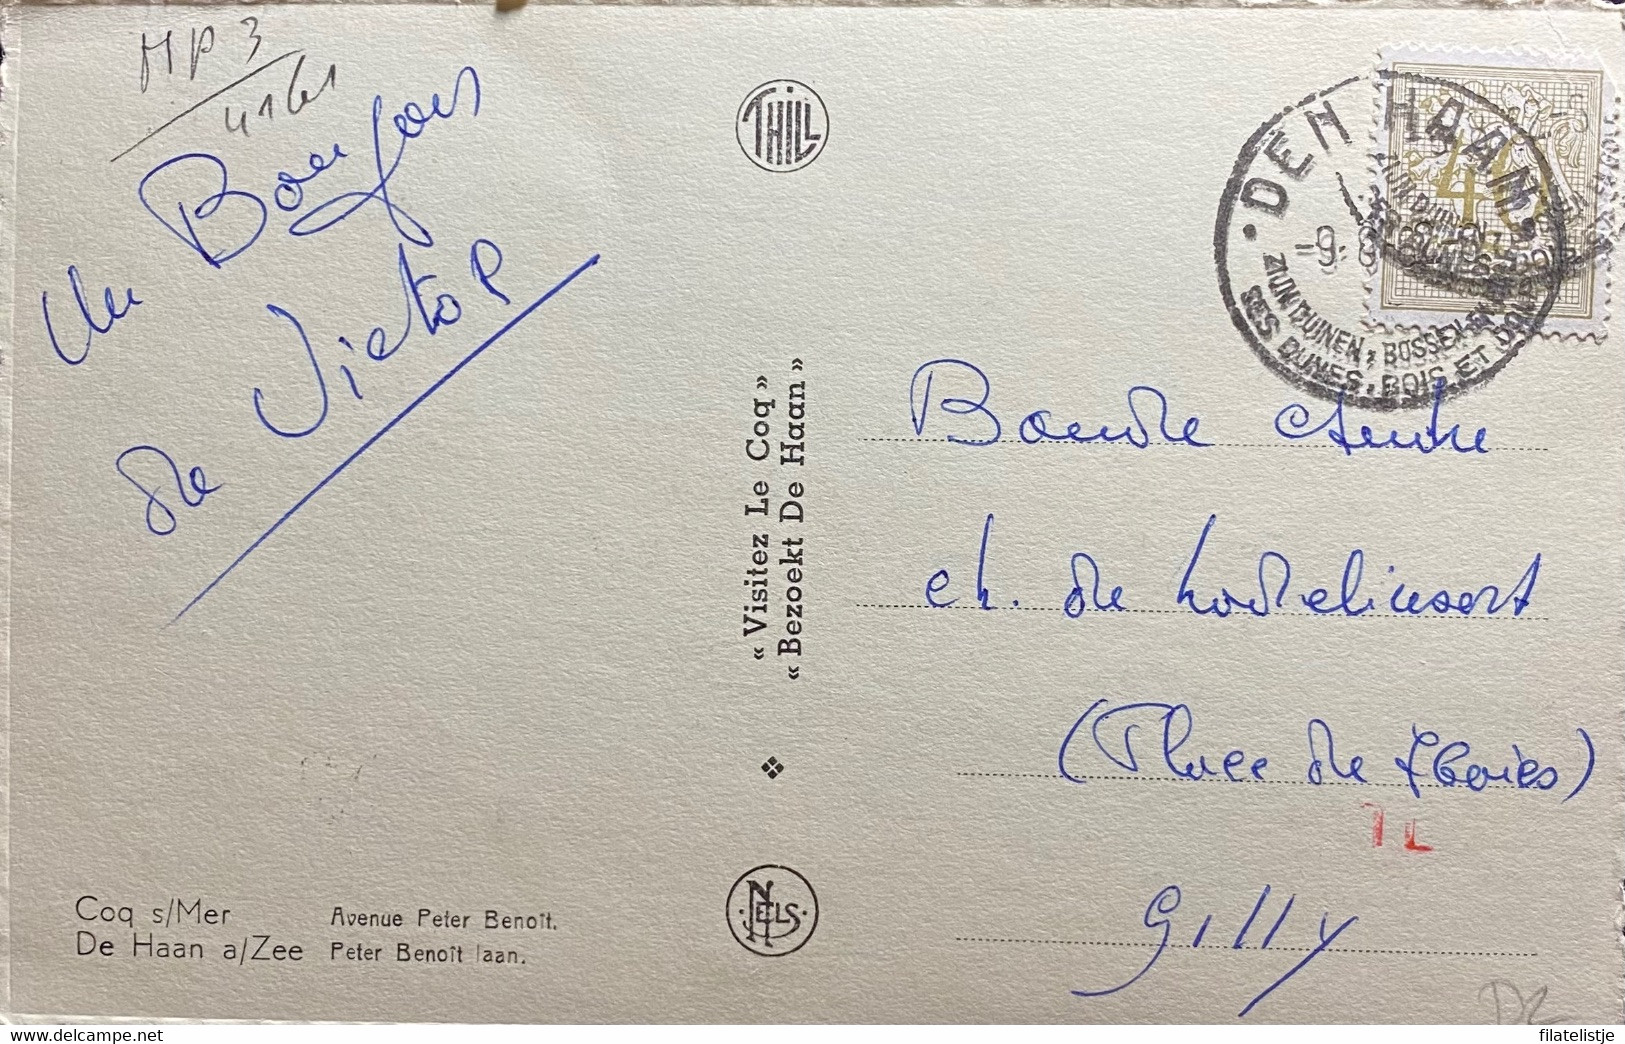 MP3
4161
Un Bonjour
de Victor
THILL
« Visitez Le Coq »
« Bezoekt De Haan »
NELS
Coq s/Mer Avenue Peter Benoît.
De Haan a/Zee Peter Benoît laan.
DEN HAAN
-9-
ZIJN DUINEN, BOSSEN
SES DUNES, BOIS ET
40
ch. de Lodelinsart
(Place de
1L
Gilly
DZ
filatelistje